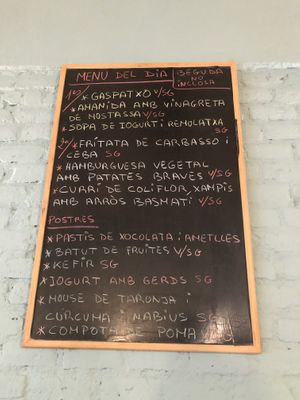 MENU DEL DIA
BEGUDA
NO
INCLOSA
1er/ * GASPATXO V/SG
* AMANIDA AMB VINAGRETA
DE MOSTASSA V/SG
* SOPA DE IOGURT i REMOLATXA
SG
2on/ * FRITATA DE CARBASSO i
CEBA SG
* HAMBURGUESA VEGETAL
AMB PATATES BRAVES V/SG
* CUARI DE COLIFLOR, XAMPIS
AMB ARRÒS BASMATI V/SG
POSTRES
* PASTIS DE XOCOLATA i AMETLLES
* BATUT DE FRUITES V/SG
* KEFIR SG
* IOGURT AMB GERDS SG
* MOUSE DE TARONJA i
CURCUMA i NABIUS SG
* COMPOTA DE POMA V/SG